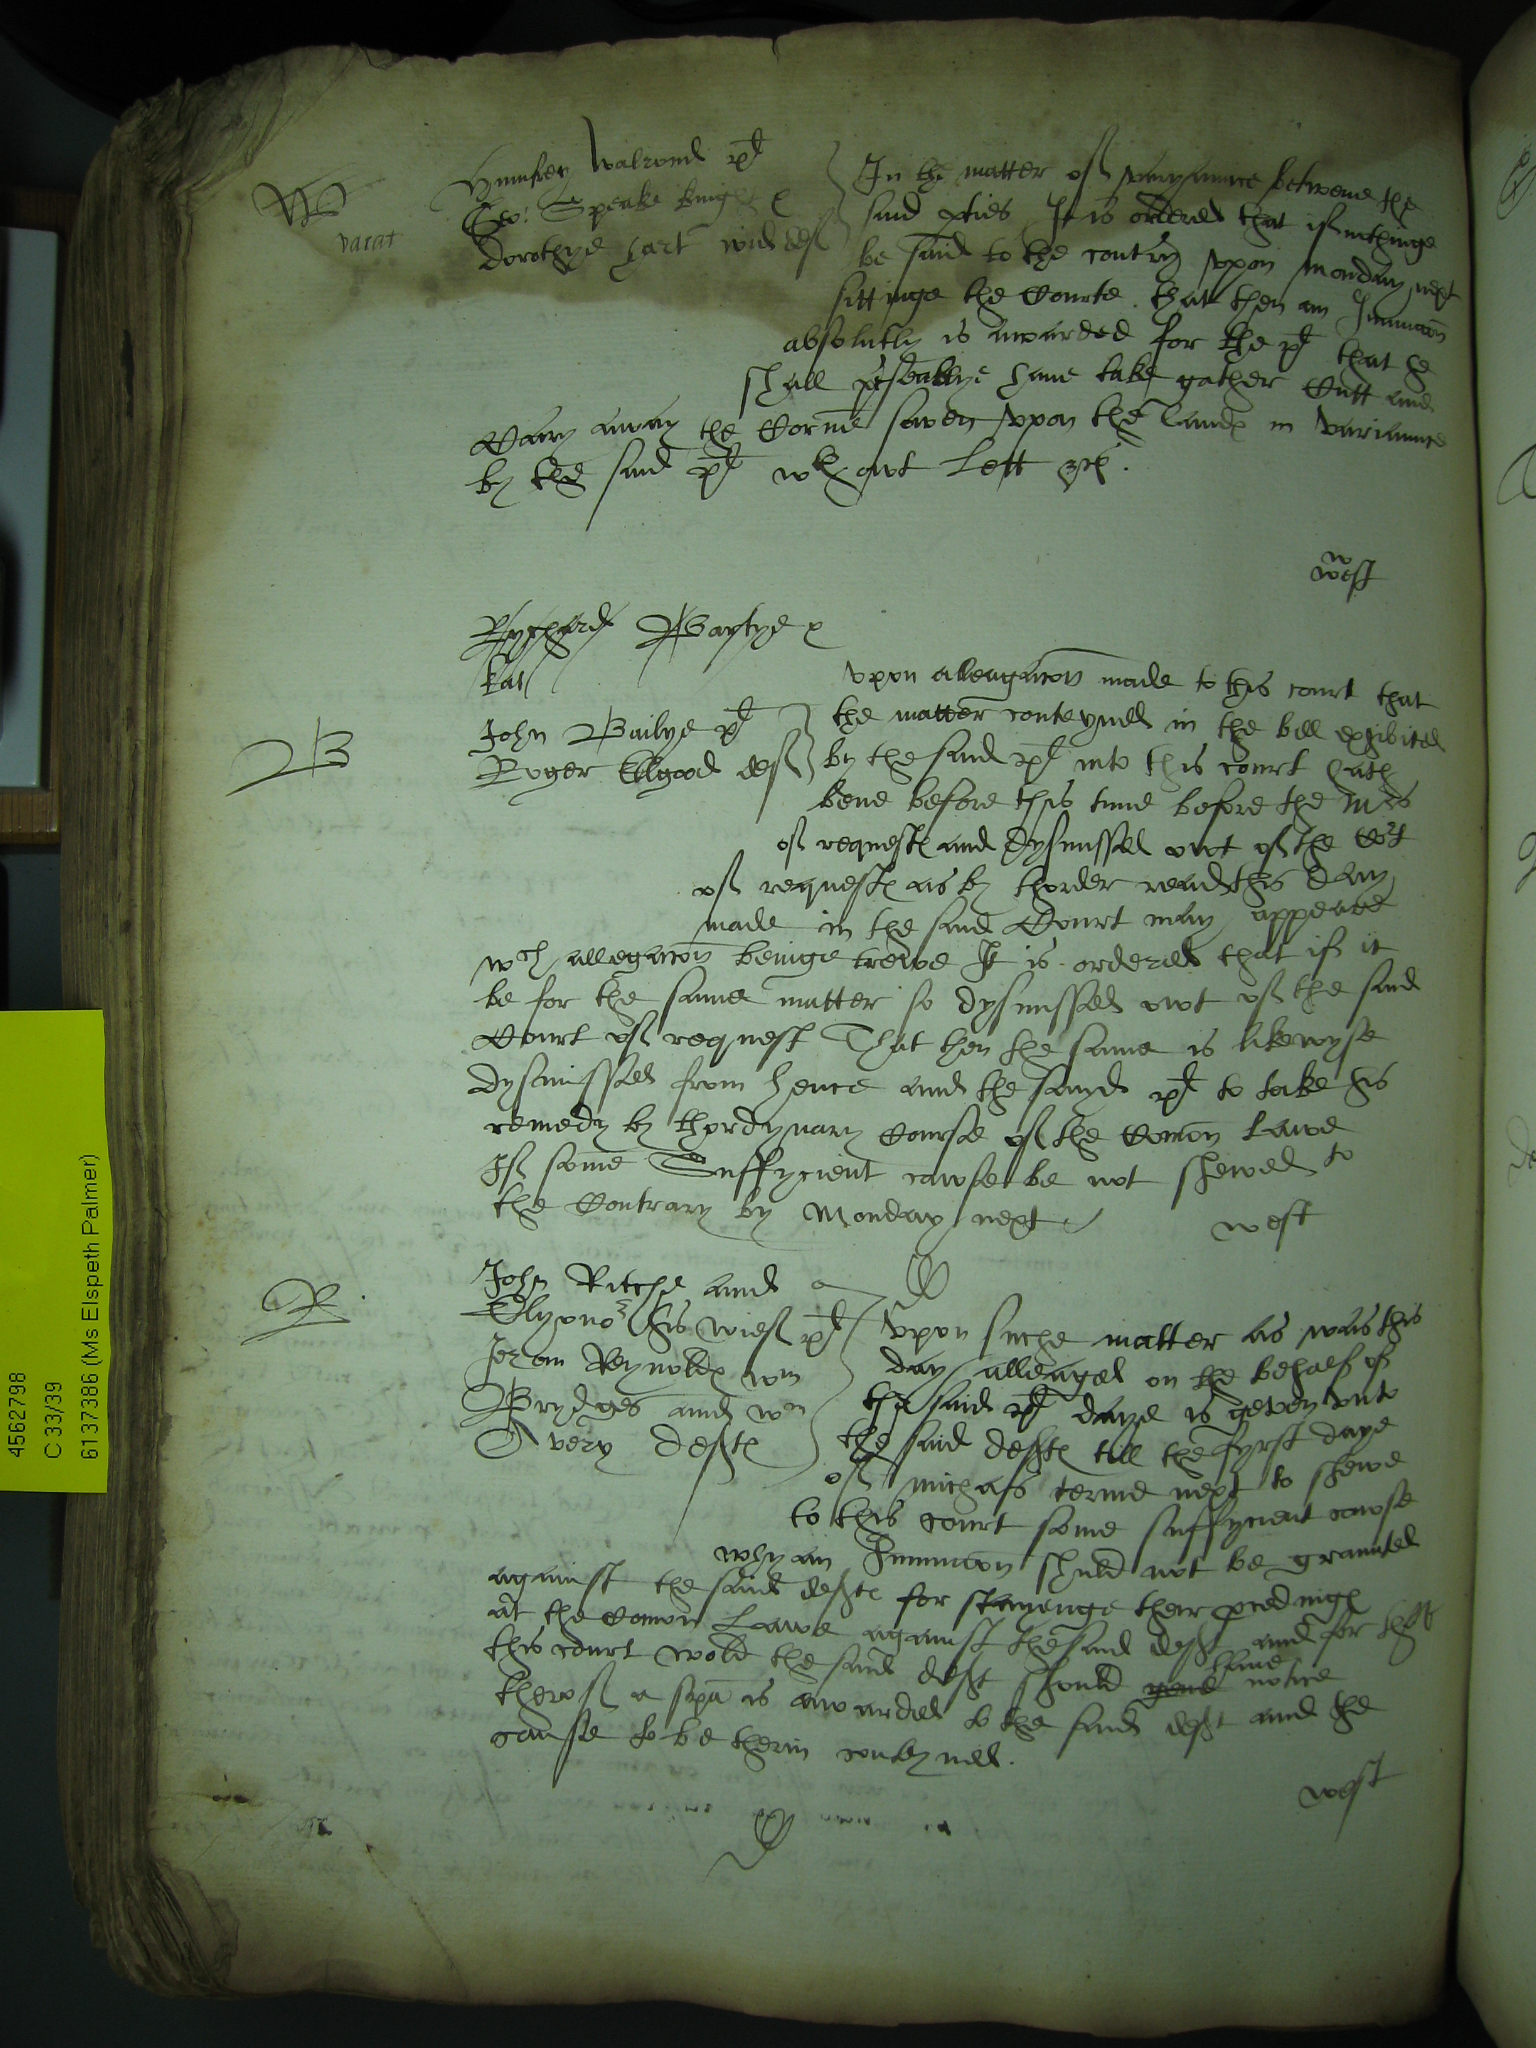 W
vacat
Humfrey Walrond pl
Geo: Speake knight &
Dorothye hart wid def
In the matter of varyaunce betwene the
said pties It is ordered that if nothinge
be said to the contry vpon monday next
sittinge the Courte that then an Iniunccon
absolutly is awarded for the pl that he
shall peseablye have take gather Cutt and
Cary away the Corne sowen vpon the landes in variaunce
by the said pl wthowt Lett &c.
west
Rychard Baylye &
Kat
B
John Bailye pl
Roger Elgood def
vpon alleagacon made to this court that
the matter conteyned in the bill exhibited
by the said pl into this court hath
bene before this time before the Mrs
of requestes and dysmissed owt of the Cort
of requestes as by thorder read this day
made in the said Court may appeare
wch allegacon beinge trewe It is ordered that if it
be for the same matter so dysmissed owt of the said
Court of request That then the same is likewyse
dysmissed from hence and the sayd pl to take his
remedy by thordynary Course of the Comon Lawe
If some Suffycient cawse be not shewed to
the Contrary by Monday next
west
R
John Ritche and
Elyonor his wief pl
Jerom Reynoldes wm
Brydges and wm
Avery deftes
Vpon suche matter as was this
day alleaged on the behalf of
the said pl daye is geven vnto
the said deftes till the fyrst daye
of michas terme next to shewe
to this court some suffycient cawse
why an Iniunccon shuld not be graunted
against the said deftes for stayenge their pcedinges
at the comon Lawe against the said deft and for that
this court wold the said deft should have notice
therof a spa is awarded to the said deft and the
cause to be therin conteyned.
west
4562798
C 33/39
6137386 (Ms Elspeth Palmer)